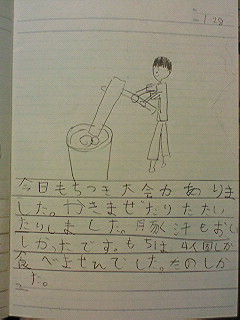 1.28
今日もちつき大会がありま
した。かきまぜたりたたい
たりしました。豚汁もおい
しかったです。もちは4個しか
食べませんでした。たのしか
た。